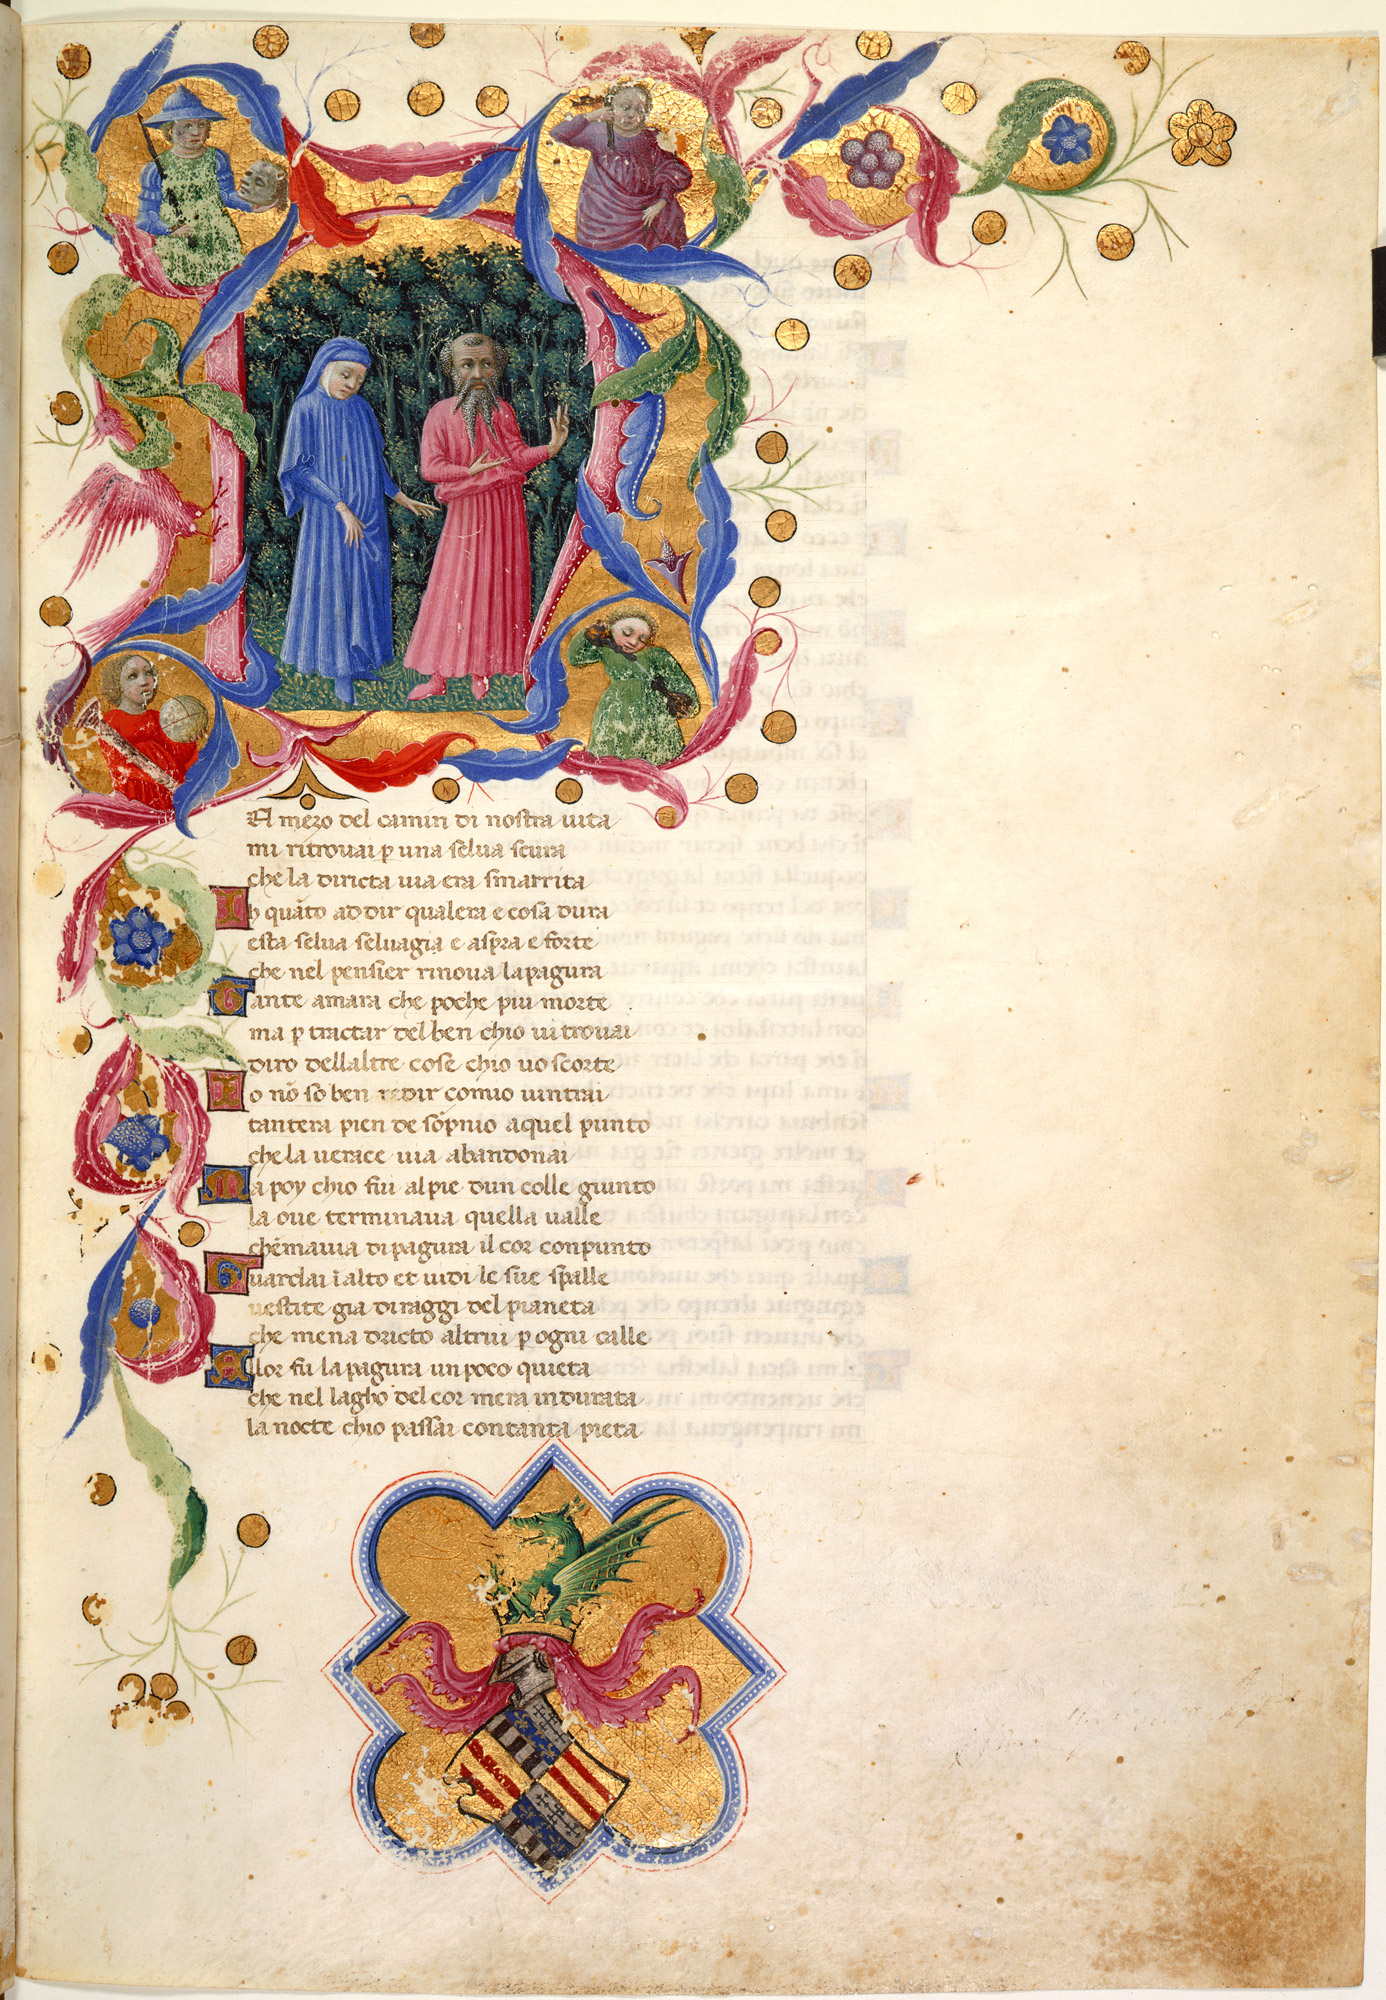 A mezo del camin di nostra uita
mi ritrouai p una selua scura
che la diricta uia era smarrita
Ih quāto ad dir qualera e cosa dura
esta selua seluagia e aspra e forte
che nel pensier rinoua la pagura
Tante amara che poche piu morte
ma p tractar del ben chio ui trouai
diro dellaltre cose chio uo scorte
Io nō so ben redir comio uintrai
tantera pien de sopnio aquel punto
che la uerace uia abandonai
Ma poy chio fui al pie dun colle giunto
la oue terminaua quella ualle
che mauia di pagura il cor conpunto
Guardai ī alto et uidi le sue spalle
uestite gia di raggi del pianeta
che mena dricto altrui p ogni calle
Allor fu la pagura un poco quieta
che nel lagho del cor mera indurata
la nocte chio passai con tanta pieta